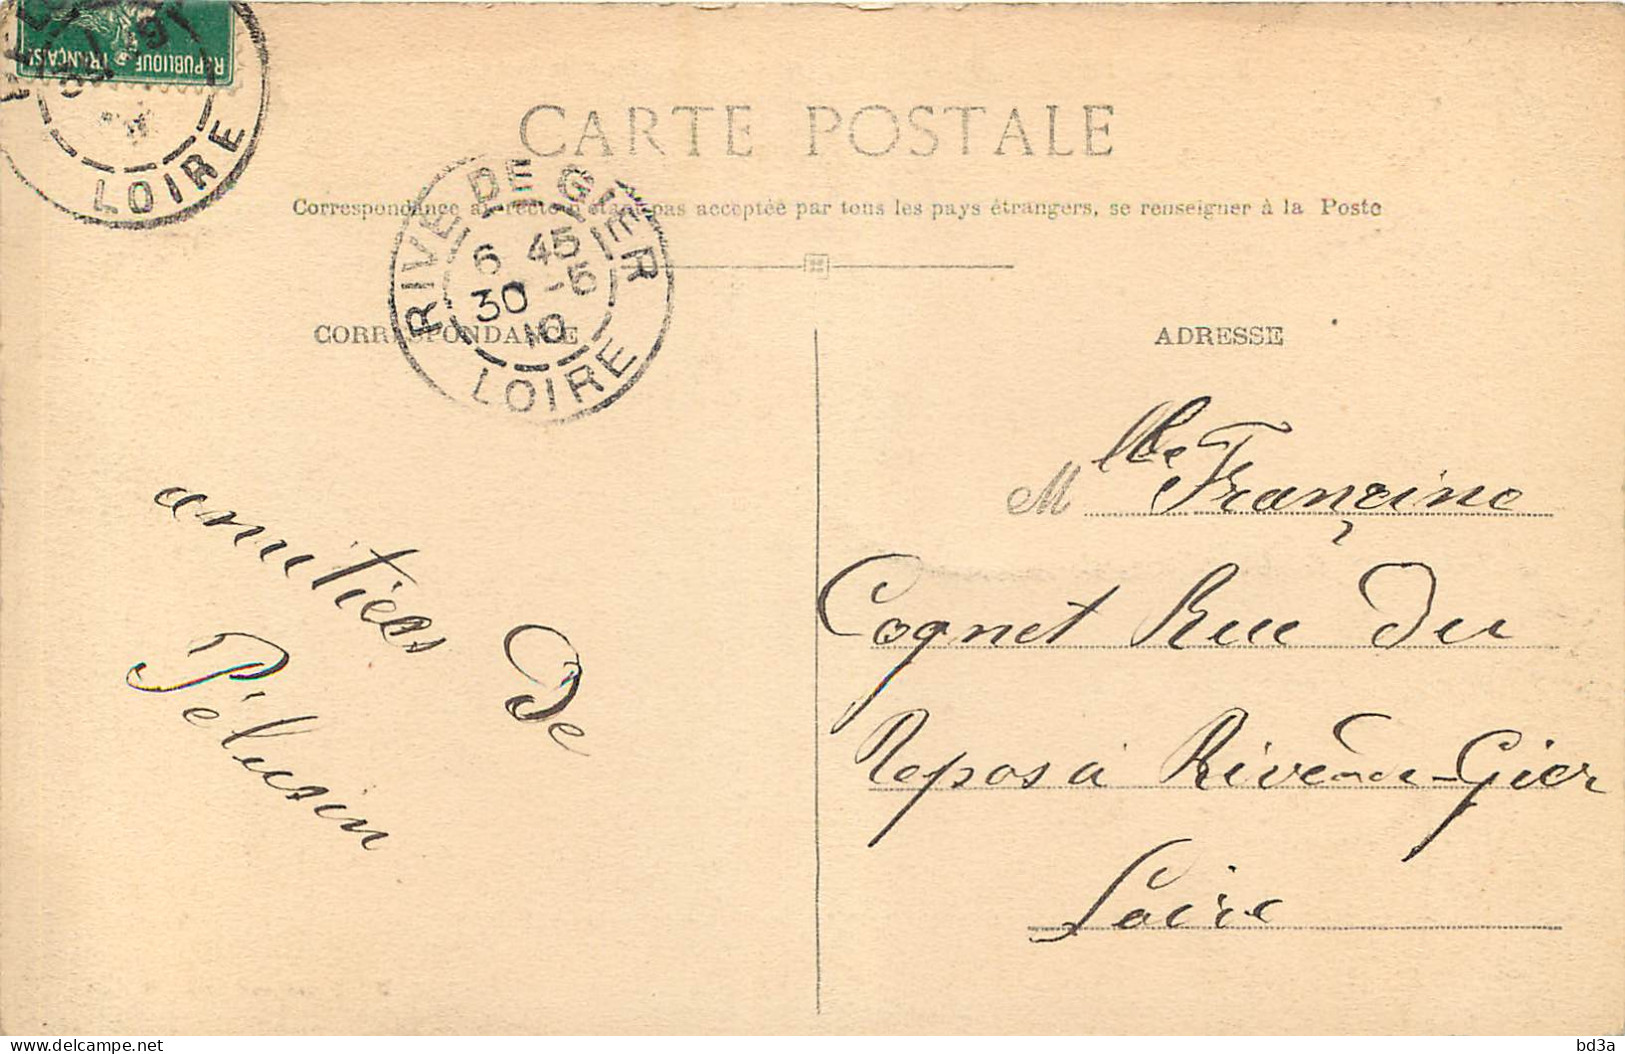 RÉPUBLIQUE FRANÇAISE
LOIRE
CARTE POSTALE
Correspondance au recto n'étant pas acceptée par tous les pays étrangers, se renseigner à la Poste
RIVE DE GIER
6 45
30 -5
10
LOIRE
CORRESPONDANCE
ADRESSE
amitiés De
Pélussin
Mlle Françine
Cognet Rue Du
Repos à Rive-de-Gier
Loire
bd3a